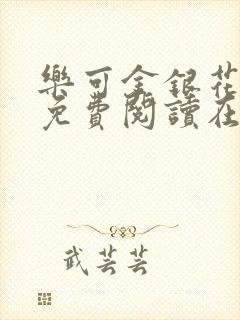 樂可金銀花
免費閱讀在
武芸芸